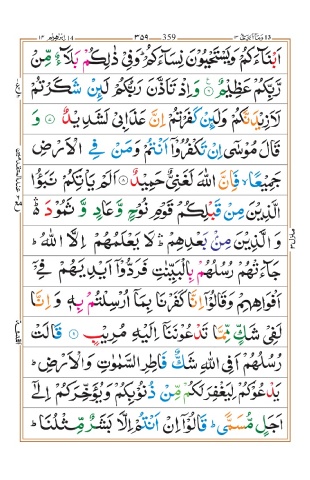 ابرٰهيم ١٤ 14 ٣٥٩ 359 وما ابرئ ١٣
اَبْنَآءَكُمْ وَيَسْتَحْيُوْنَ نِسَآءَكُمْ ؕ وَفِىْ ذٰلِكُمْ بَلَآءٌ مِّنْ
رَّبِّكُمْ عَظِيْمٌ ۟ وَ اِذْ تَاَذَّنَ رَبُّكُمْ لَئِنْ شَكَرْتُمْ
لَاَزِيْدَنَّكُمْ وَلَئِنْ كَفَرْتُمْ اِنَّ عَذَابِىْ لَشَدِيْدٌ ۟ وَ
قَالَ مُوْسٰٓى اِنْ تَكْفُرُوْۤا اَنْتُمْ وَمَنْ فِى الْاَرْضِ
جَمِيْعًا ۙ فَاِنَّ اللّٰهَ لَغَنِىٌّ حَمِيْدٌ ۟ اَلَمْ يَاْتِكُمْ نَبَؤُا
الَّذِيْنَ مِنْ قَبْلِكُمْ قَوْمِ نُوْحٍ وَّعَادٍ وَّثَمُوْدَ ۛؕ
وَ الَّذِيْنَ مِنْۢ بَعْدِهِمْ ۛؕ لَا يَعْلَمُهُمْ اِلَّا اللّٰهُ ؕ
جَآءَتْهُمْ رُسُلُهُمْ بِالْبَيِّنٰتِ فَرَدُّوْۤا اَيْدِيَهُمْ فِىْۤ
اَفْوَاهِهِمْ وَقَالُوْۤا اِنَّا كَفَرْنَا بِمَاۤ اُرْسِلْتُمْ بِهٖ وَ اِنَّا
لَفِىْ شَكٍّ مِّمَّا تَدْعُوْنَنَاۤ اِلَيْهِ مُرِيْبٍ ۟ قَالَتْ
رُسُلُهُمْ اَفِى اللّٰهِ شَكٌّ فَاطِرِ السَّمٰوٰتِ وَالْاَرْضِ ؕ
يَدْعُوْكُمْ لِيَغْفِرَ لَكُمْ مِّنْ ذُنُوْبِكُمْ وَيُؤَخِّرَكُمْ اِلٰٓى
اَجَلٍ مُّسَمًّى ؕ قَالُوْۤا اِنْ اَنْتُمْ اِلَّا بَشَرٌ مِّثْلُنَا ؕ